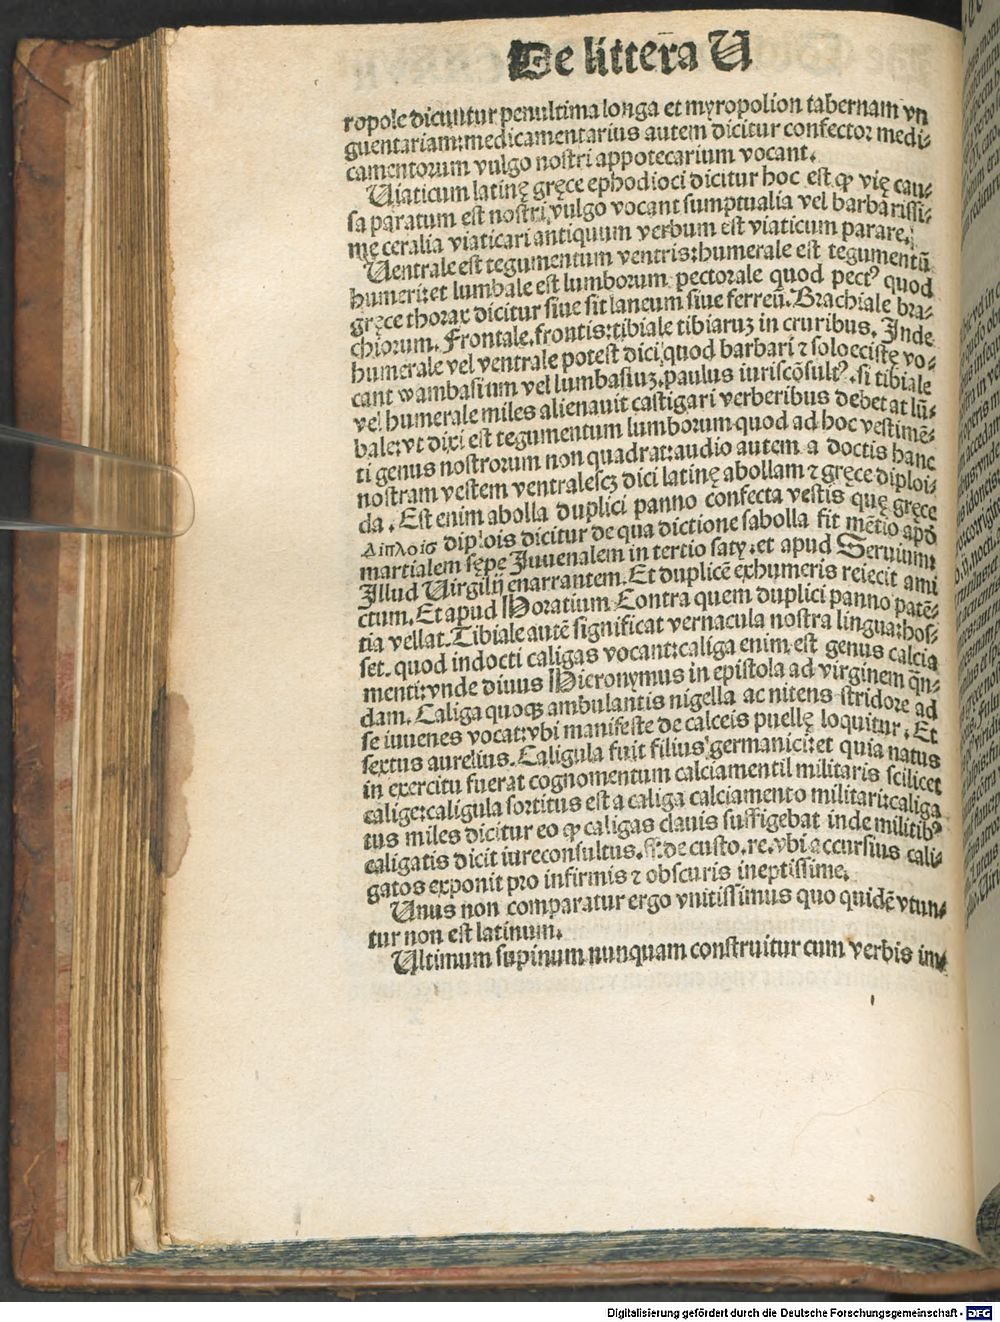 De littera U
ropole dicuntur penultima longa et myropolion tabernam vn
guentariam: medicamentarius autem dicitur confector medi⸗
camentorum vulgo nostri appotecarium vocant.
Uiaticum latinę gręce ephodioci dicitur hoc est ꝙ vię cau⸗
sa paratum est nostri vulgo vocant sumptualia vel barbarissi⸗
mę ceralia viaticari antiquum verbum est viaticum parare.
Uentrale est tegumentum ventris: humerale est tegumentū
humeri: et lumbale est lumborum pectorale quod pectꝰ quod
gręce thorax dicitur siue sit laneum siue ferreū. Brachiale bra⸗
chiorum. Frontale. frontis: tibiale tibiaruꝫ in cruribus. Inde
humerale vel ventrale potest dici quod barbari ⁊ soloecistę vo⸗
cant wambasium vel lumbasiuꝫ. paulus iuriscōsultꝰ. si tibiale
vel humerale miles alienauit castigari verberibus debet at lū⸗
bale: vt dixi est tegumentum lumborum quod ad hoc vestimē⸗
ti genus nostrorum non quadrat: audio autem a doctis hanc
nostram vestem ventralescꝫ dici latinę abollam ⁊ gręce diploi⸗
da. Est enim abolla duplici panno confecta vestis quę gręce
Διπλοισ diplois dicitur de qua dictione sabolla fit mētio apđ
martialem sępe Iuuenalem in tertio saty. et apud Seruium:
Illud Uirgilij enarrantem. Et duplicē exhumeris reiecit ami
ctum. Et apud Horatium Contra quem duplici panno patē⸗
tia vellat. Tibiale autē significat vernacula nostra lingua: hos⸗
set. quod indocti caligas vocant: caliga enim est genus calcia
menti: vnde diuus Hieronymus in epistola ad virginem q̄n⸗
dam. Caliga quoqꝫ ambulantis nigella ac nitens stridore ad
se iuuenes vocat: vbi manifeste de calceis puellę loquitur. Et
sextus aurelius. Caligula fuit filius germanici: et quia natus
in exercitu fuerat cognomentum calciamentil militaris scilicet
calige: caligula sortitus est a caliga calciamento militari: caliga
tus miles dicitur eo ꝙ caligas clauis suffigebat inde militibꝰ
caligatis dicit iureconsultus. ff. de custo. re. vbi accursius cali⸗
gatos exponit pro infirmis ⁊ obscuris ineptissime.
Unus non comparatur ergo vnitissimus quo quidē vtun⸗
tur non est latinum.
Ultimum supinum nunquam construitur cum verbis im⸗
Digitalisierung gefördert durch die Deutsche Forschungsgemeinschaft - DFG